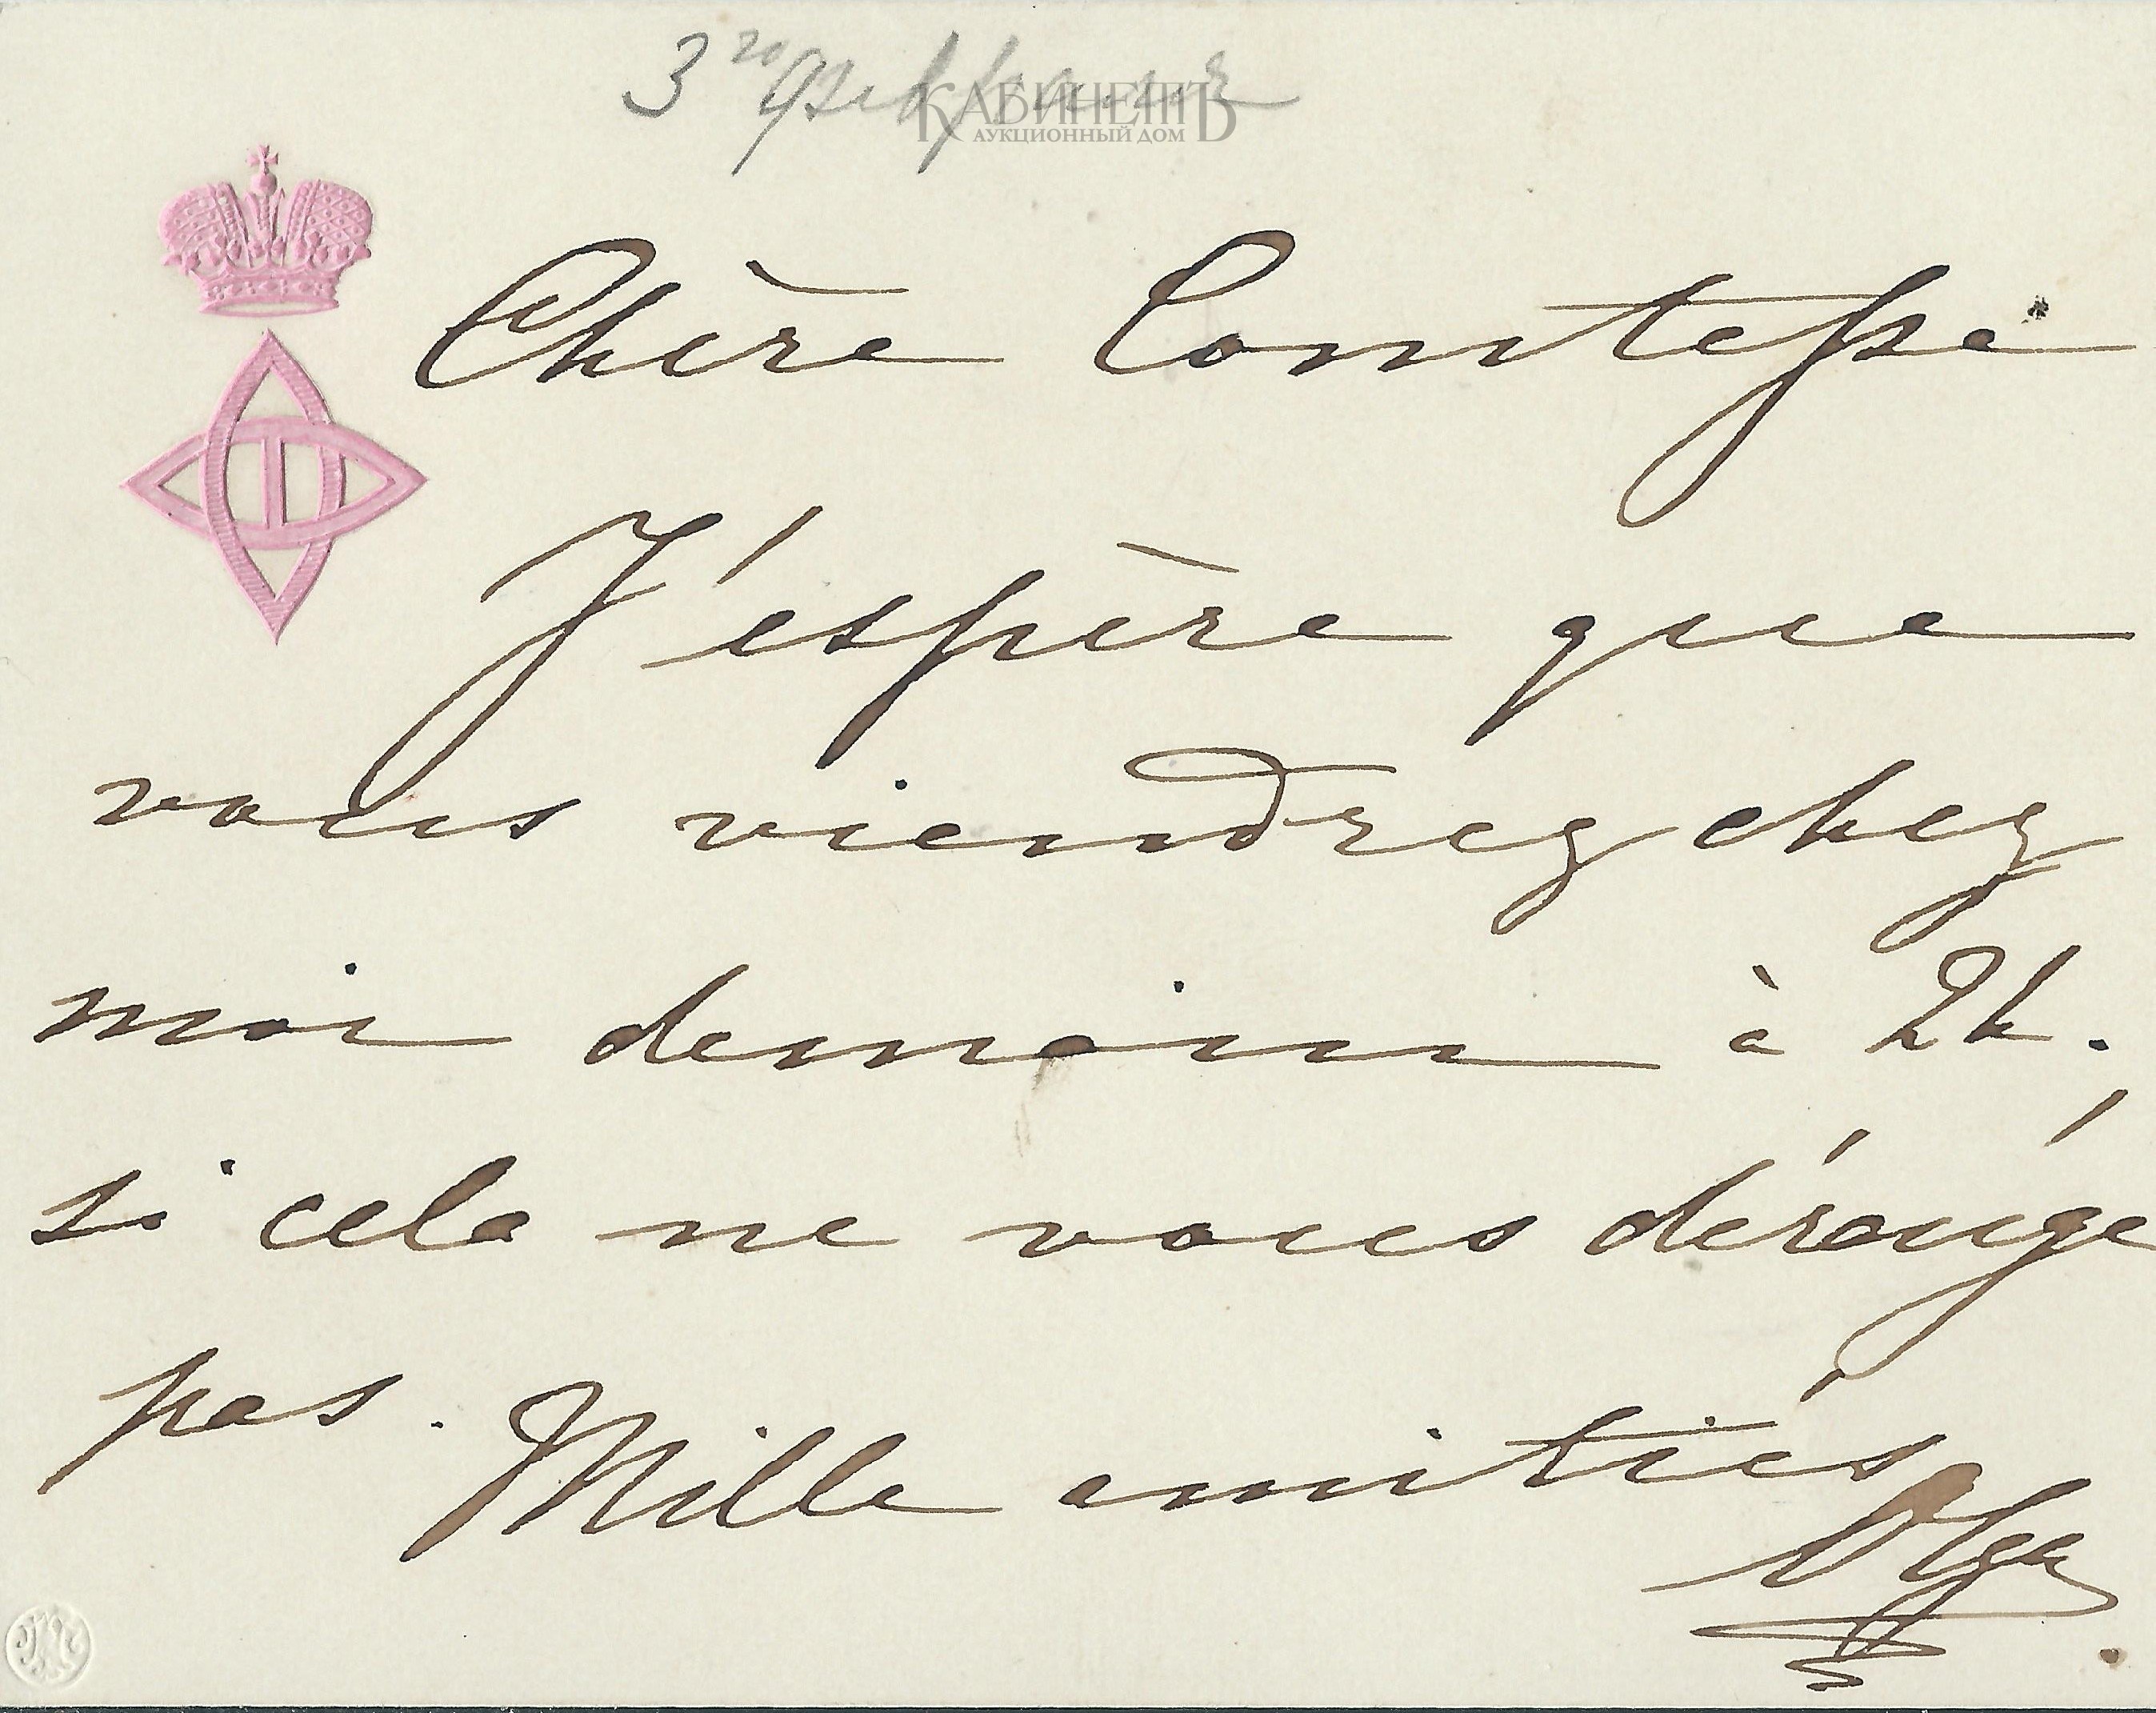 3го февраля
КАБИНЕТЪ
АУКЦИОННЫЙ ДОМ
Chère Comtesse
J'espère que
vous viendrez chez
moi demain à 2h.
si cela ne vous dérange
pas. Mille amitiés
Olga